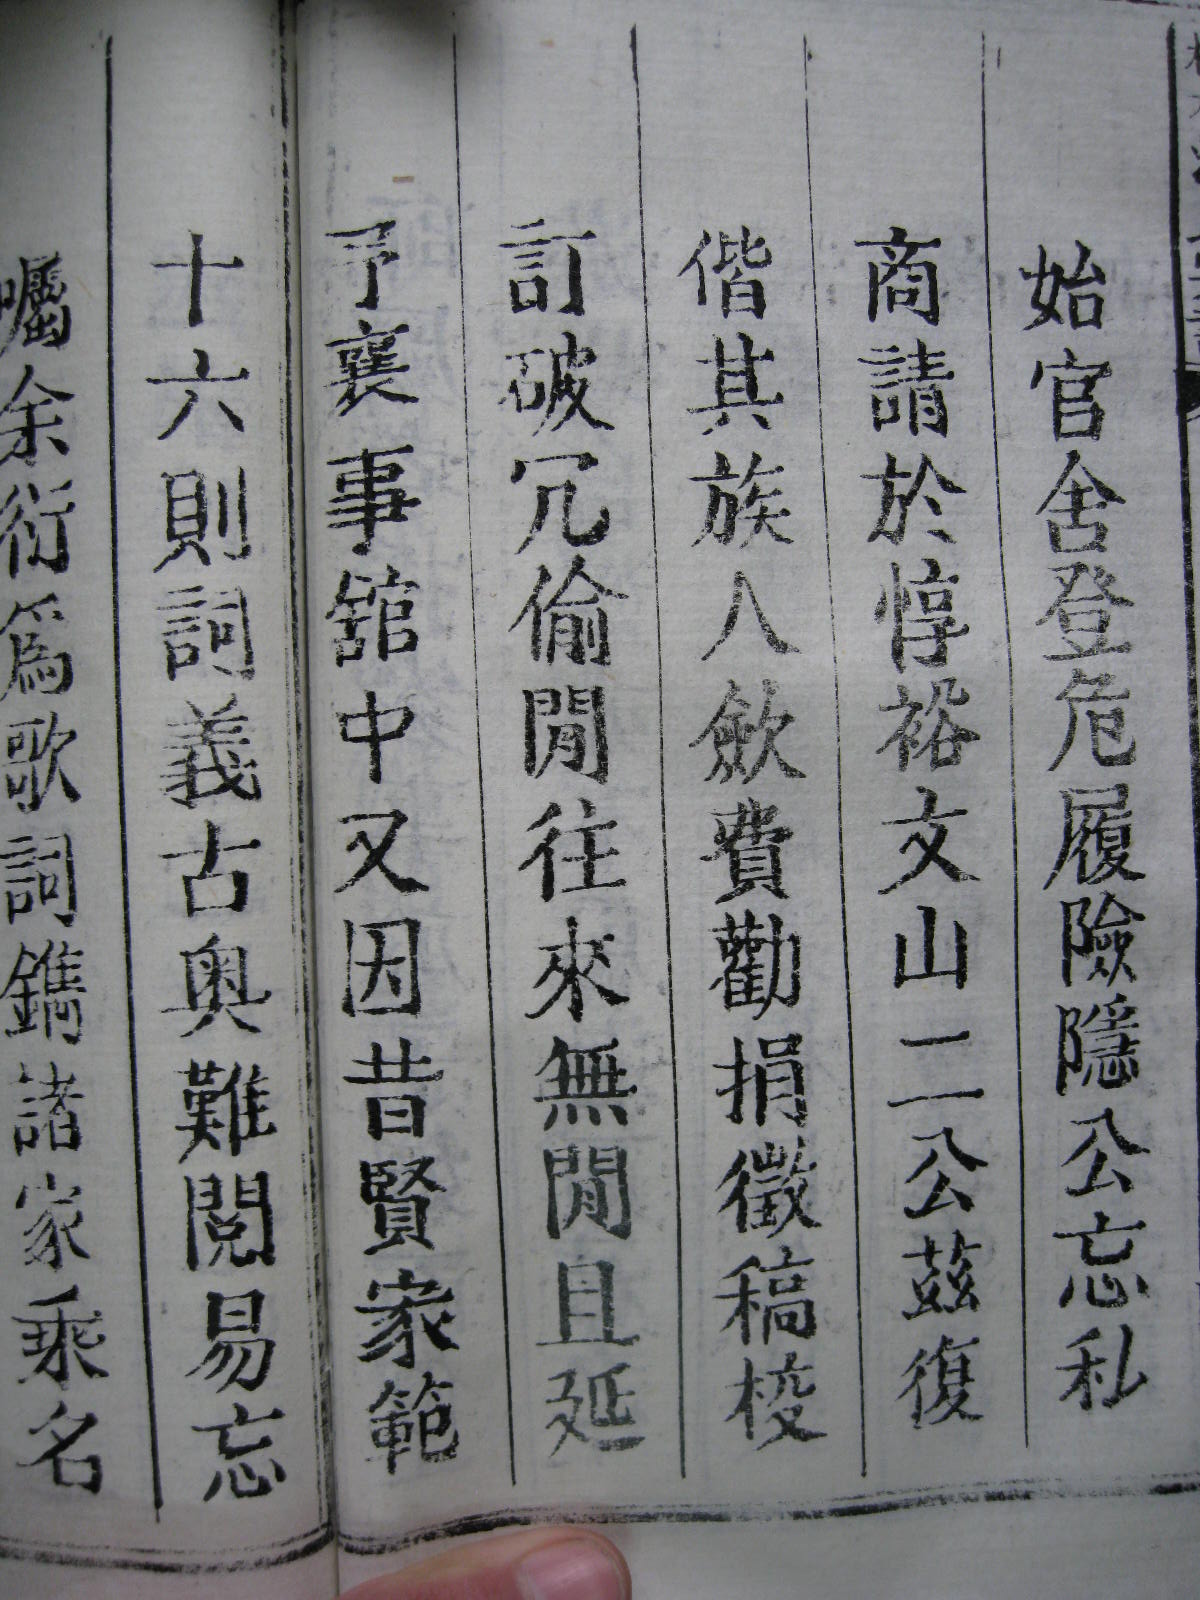 始官舍登危履險隱公忘私
商請於惇裕文山二公茲復
偕其族人斂費勸捐徵稿校
訂破冗偷閒往來無閒且延
予襄事舘中又因昔賢家範
十六則詞義古奧難閱易忘
囑余衍爲歌詞鐫諸家乘名